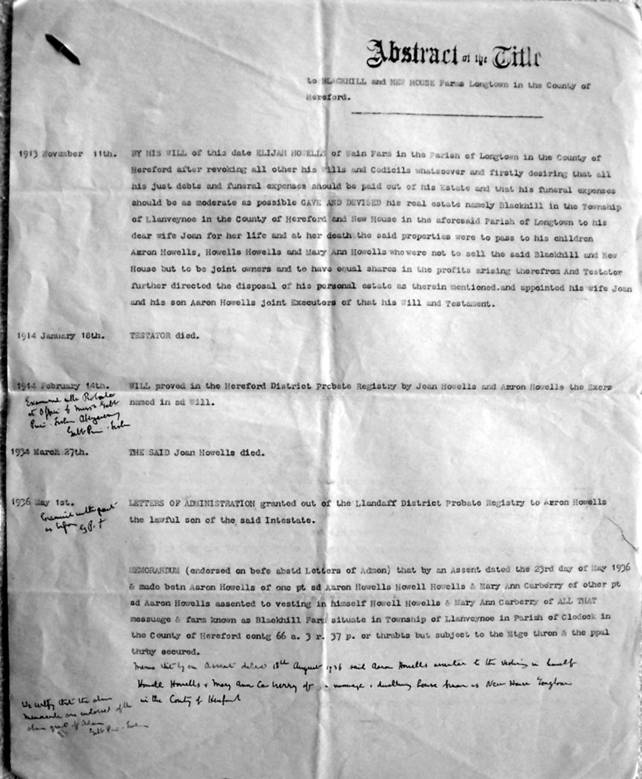 Abstract of the Title
to BLACKHILL and NEW HOUSE Farms Longtown in the County of
Hereford.
1913 November 11th. BY HIS WILL of this date ELIJAH HOWELLS of Wain Farm in the Parish of Longtown in the County of
Hereford after revoking all other his Wills and Codicils whatsoever and firstly desiring that all
his just debts and funeral expenses should be paid out of his Estate and that his funeral expenses
should be as moderate as possible GAVE AND DEVISED his real estate namely Blackhill in the Township
of Llanveynoe in the County of Hereford and New House in the aforesaid Parish of Longtown to his
dear wife Joan for her life and at her death the said properties were to pass to his children
Aaron Howells, Howells Howells and Mary Ann Howells who were not to sell the said Blackhill and New
House but to be joint owners and to have equal shares in the profits arising therefrom And Testator
further directed the disposal of his personal estate as therein mentioned.and appointed his wife Joan
and his son Aaron Howells joint Executors of that his Will and Testament.
1914 January 18th. TESTATOR died.
1914 February 14th. WILL proved in the Hereford District Probate Registry by Joan Howells and Aaron Howells the Exers
named in sd Will.
Examined with Probate
at Office of Messrs Gabb
1934 March 27th. THE SAID Joan Howells died.
1936 May 1st. LETTERS OF ADMINISTRATION granted out of the Llandaff District Probate Registry to Aaron Howells
the lawful son of the said Intestate.
MEMORANDUM (endorsed on befe abstd Letters of Admon) that by an Assent dated the 23rd day of May 1936
& made betn Aaron Howells of one pt sd Aaron Howells Howell Howells & Mary Ann Carberry of other pt
sd Aaron Howells assented to vesting in himself Howell Howells & Mary Ann Carberry of ALL THAT
messuage & farm known as Blackhill Farm situate in Township of Llanveynoe in Parish of Clodock in
the County of Hereford contg 66 a. 3 r. 37 p. or thrabts but subject to the Mtge thron & the ppal
thrby secured.
Memo that by an Assent dated 18th August 1936 said Aaron Howells assented to the vesting in himself
Howell Howells & Mary Ann Carberry of a messuage & dwelling house known as New House Longtown
in the County of Hereford
We certify that the above